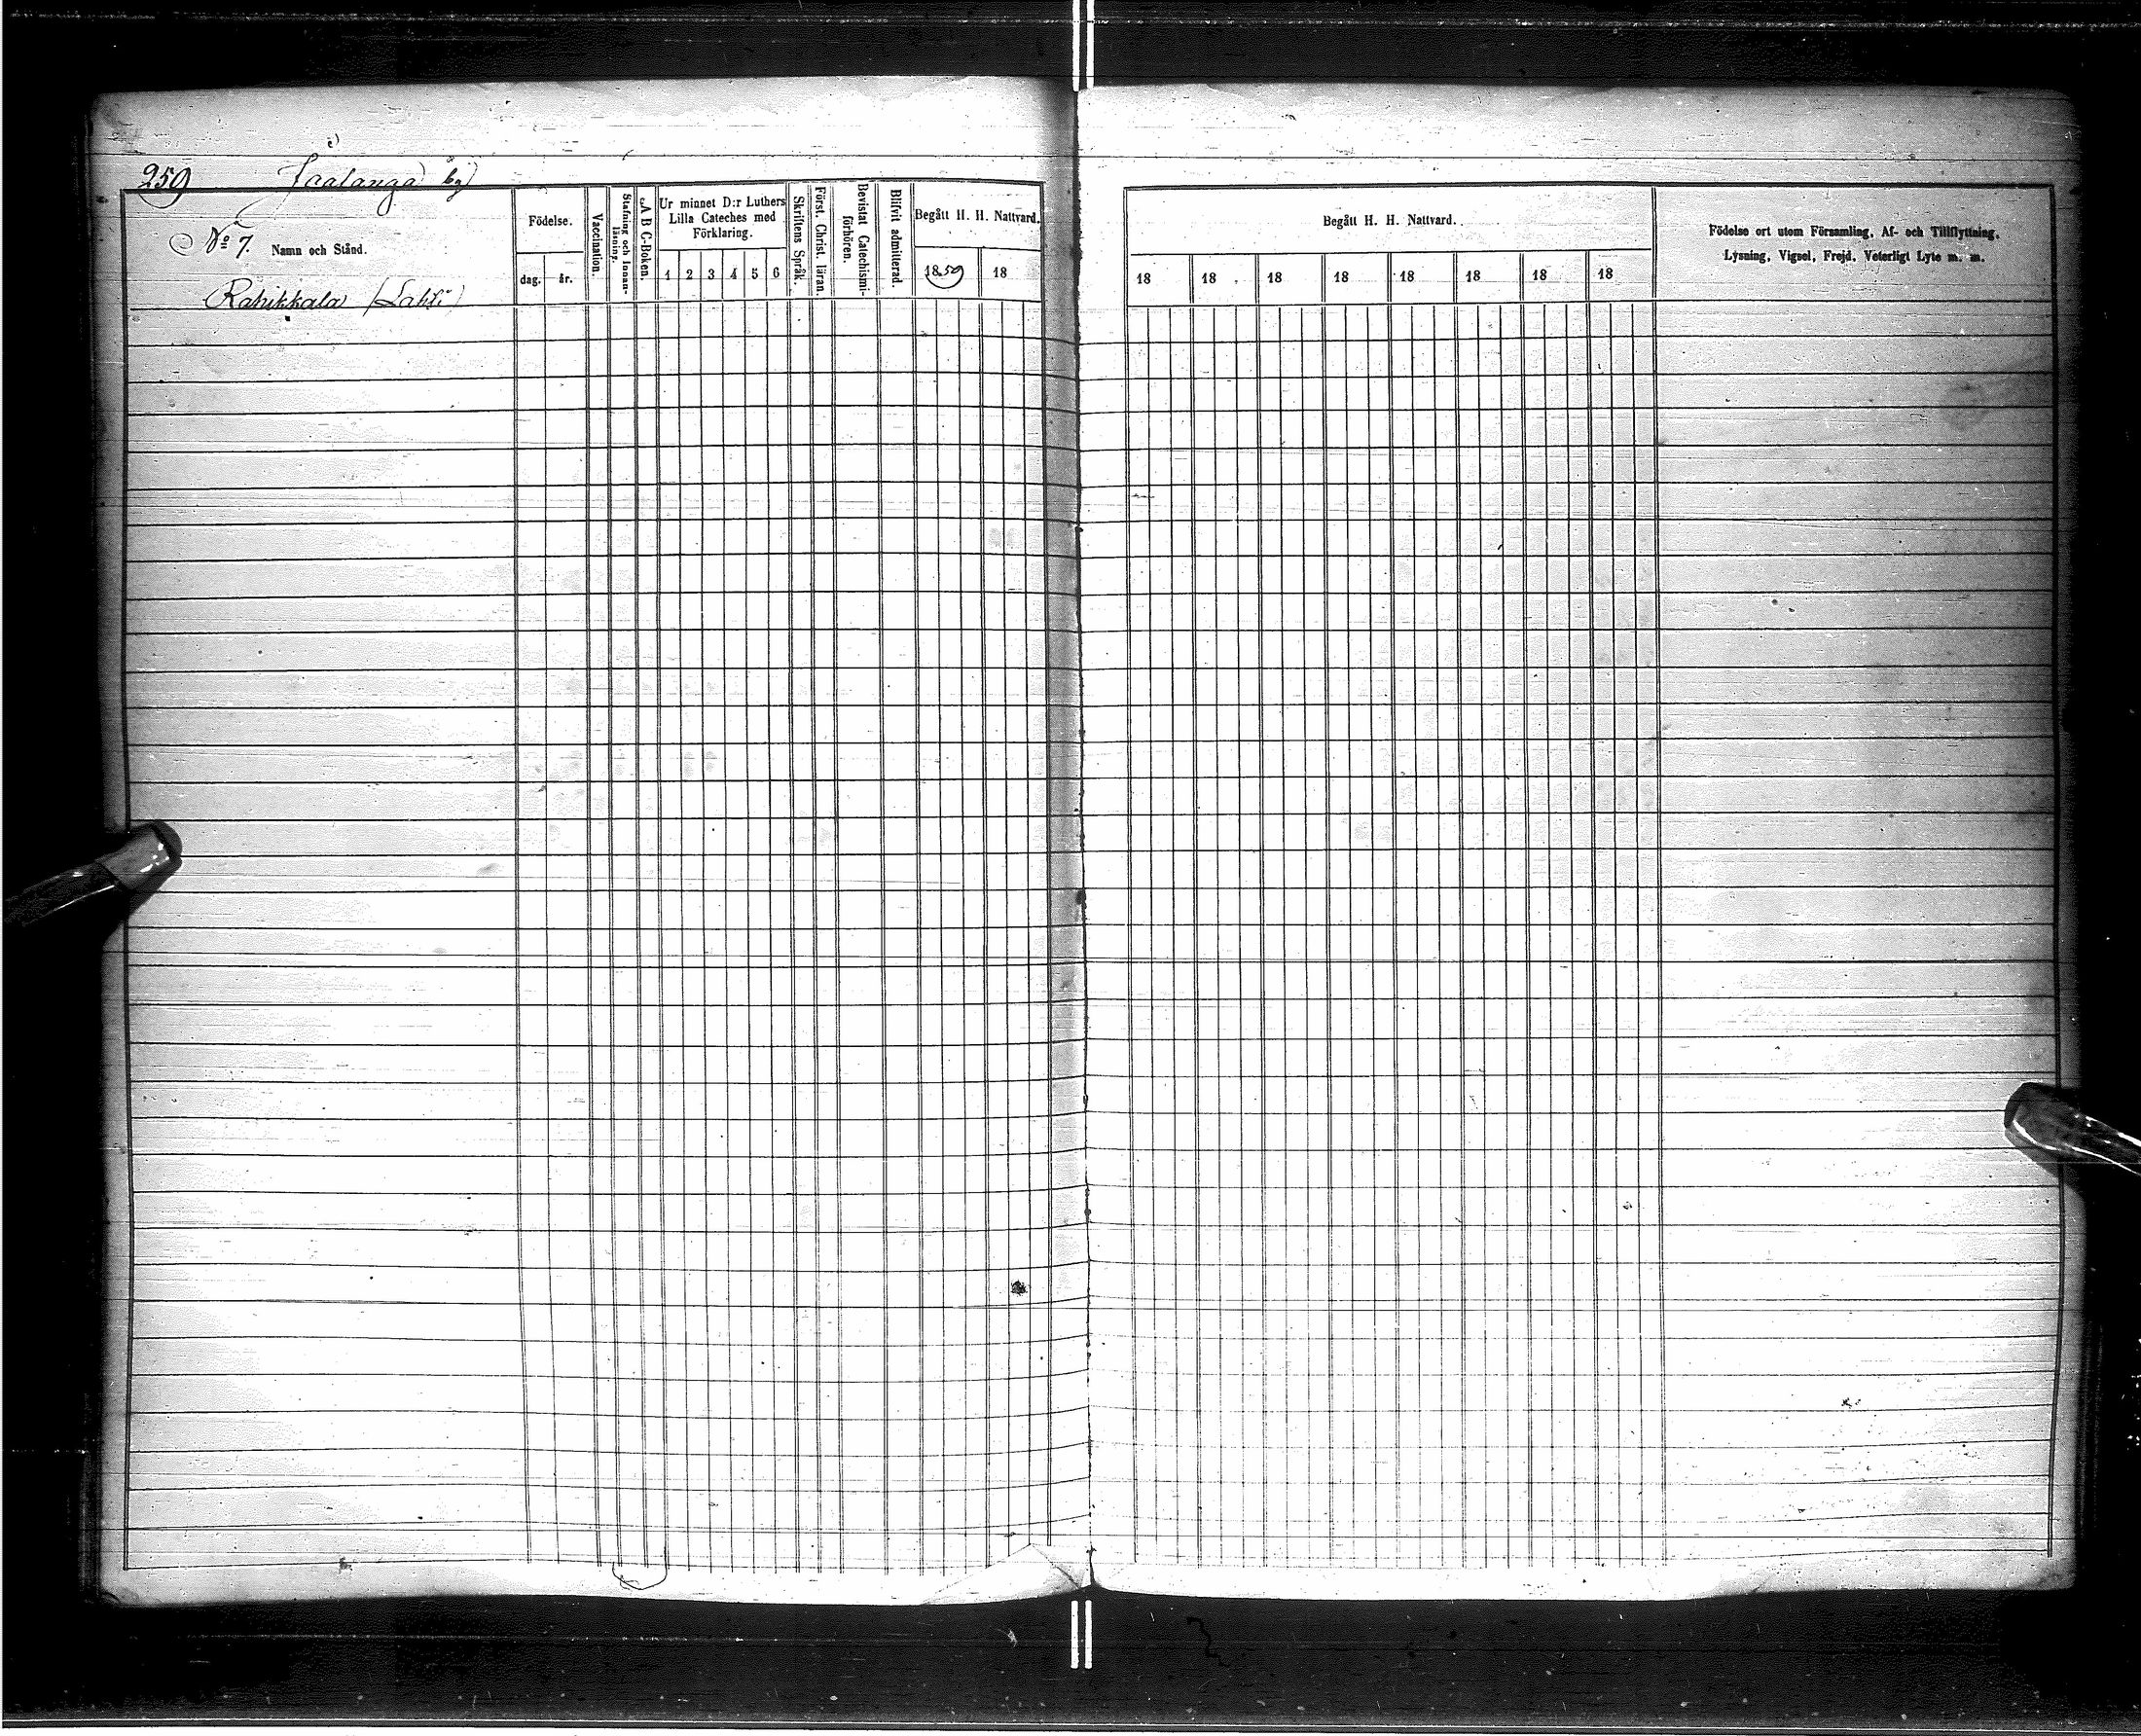 259 Jaalanga by
No 7.
Namn och Stånd.
Rahikkala (Lahti)
Födelse.
dag. år.
Vaccination.
Stafning och Innanläsning.
A B C-Boken.
Ur minnet D:r Luthers
Lilla Cateches med
Förklaring.
1 2 3 4 5 6
Skriftens Språk.
Först. Christ. läran.
Bevistat Catechismi-
förhören.
Blifvit admitterad.
Begått H. H. Nattvard.
1859 18
Begått H. H. Nattvard.
18 18 18 18 18 18 18 18
Födelse ort utom Församling, Af- och Tillflyttning,
Lysning, Vigsel, Frejd, Veterligt Lyte m. m.